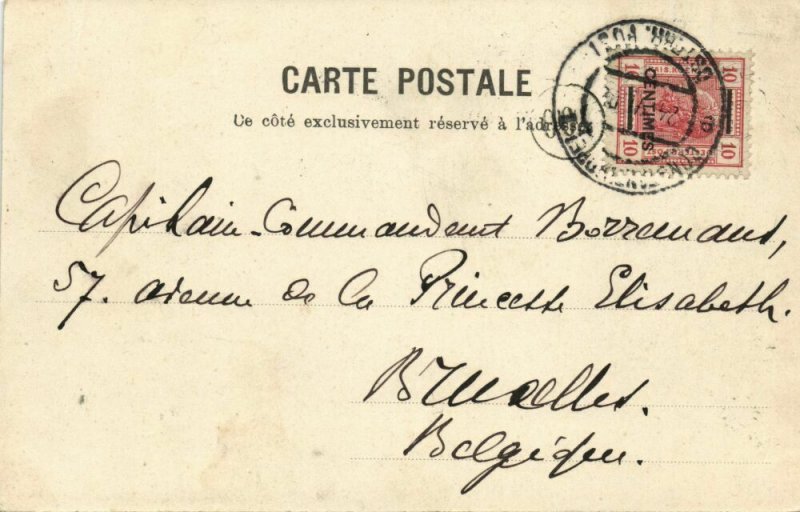 CARTE POSTALE
Ce côté exclusivement réservé à l'adresse
10 10
CENTIMES
10 10
Capitain-Commandant Borremans,
57. avenue de la Princesse Elisabeth.
Bruxelles.
Belgique.